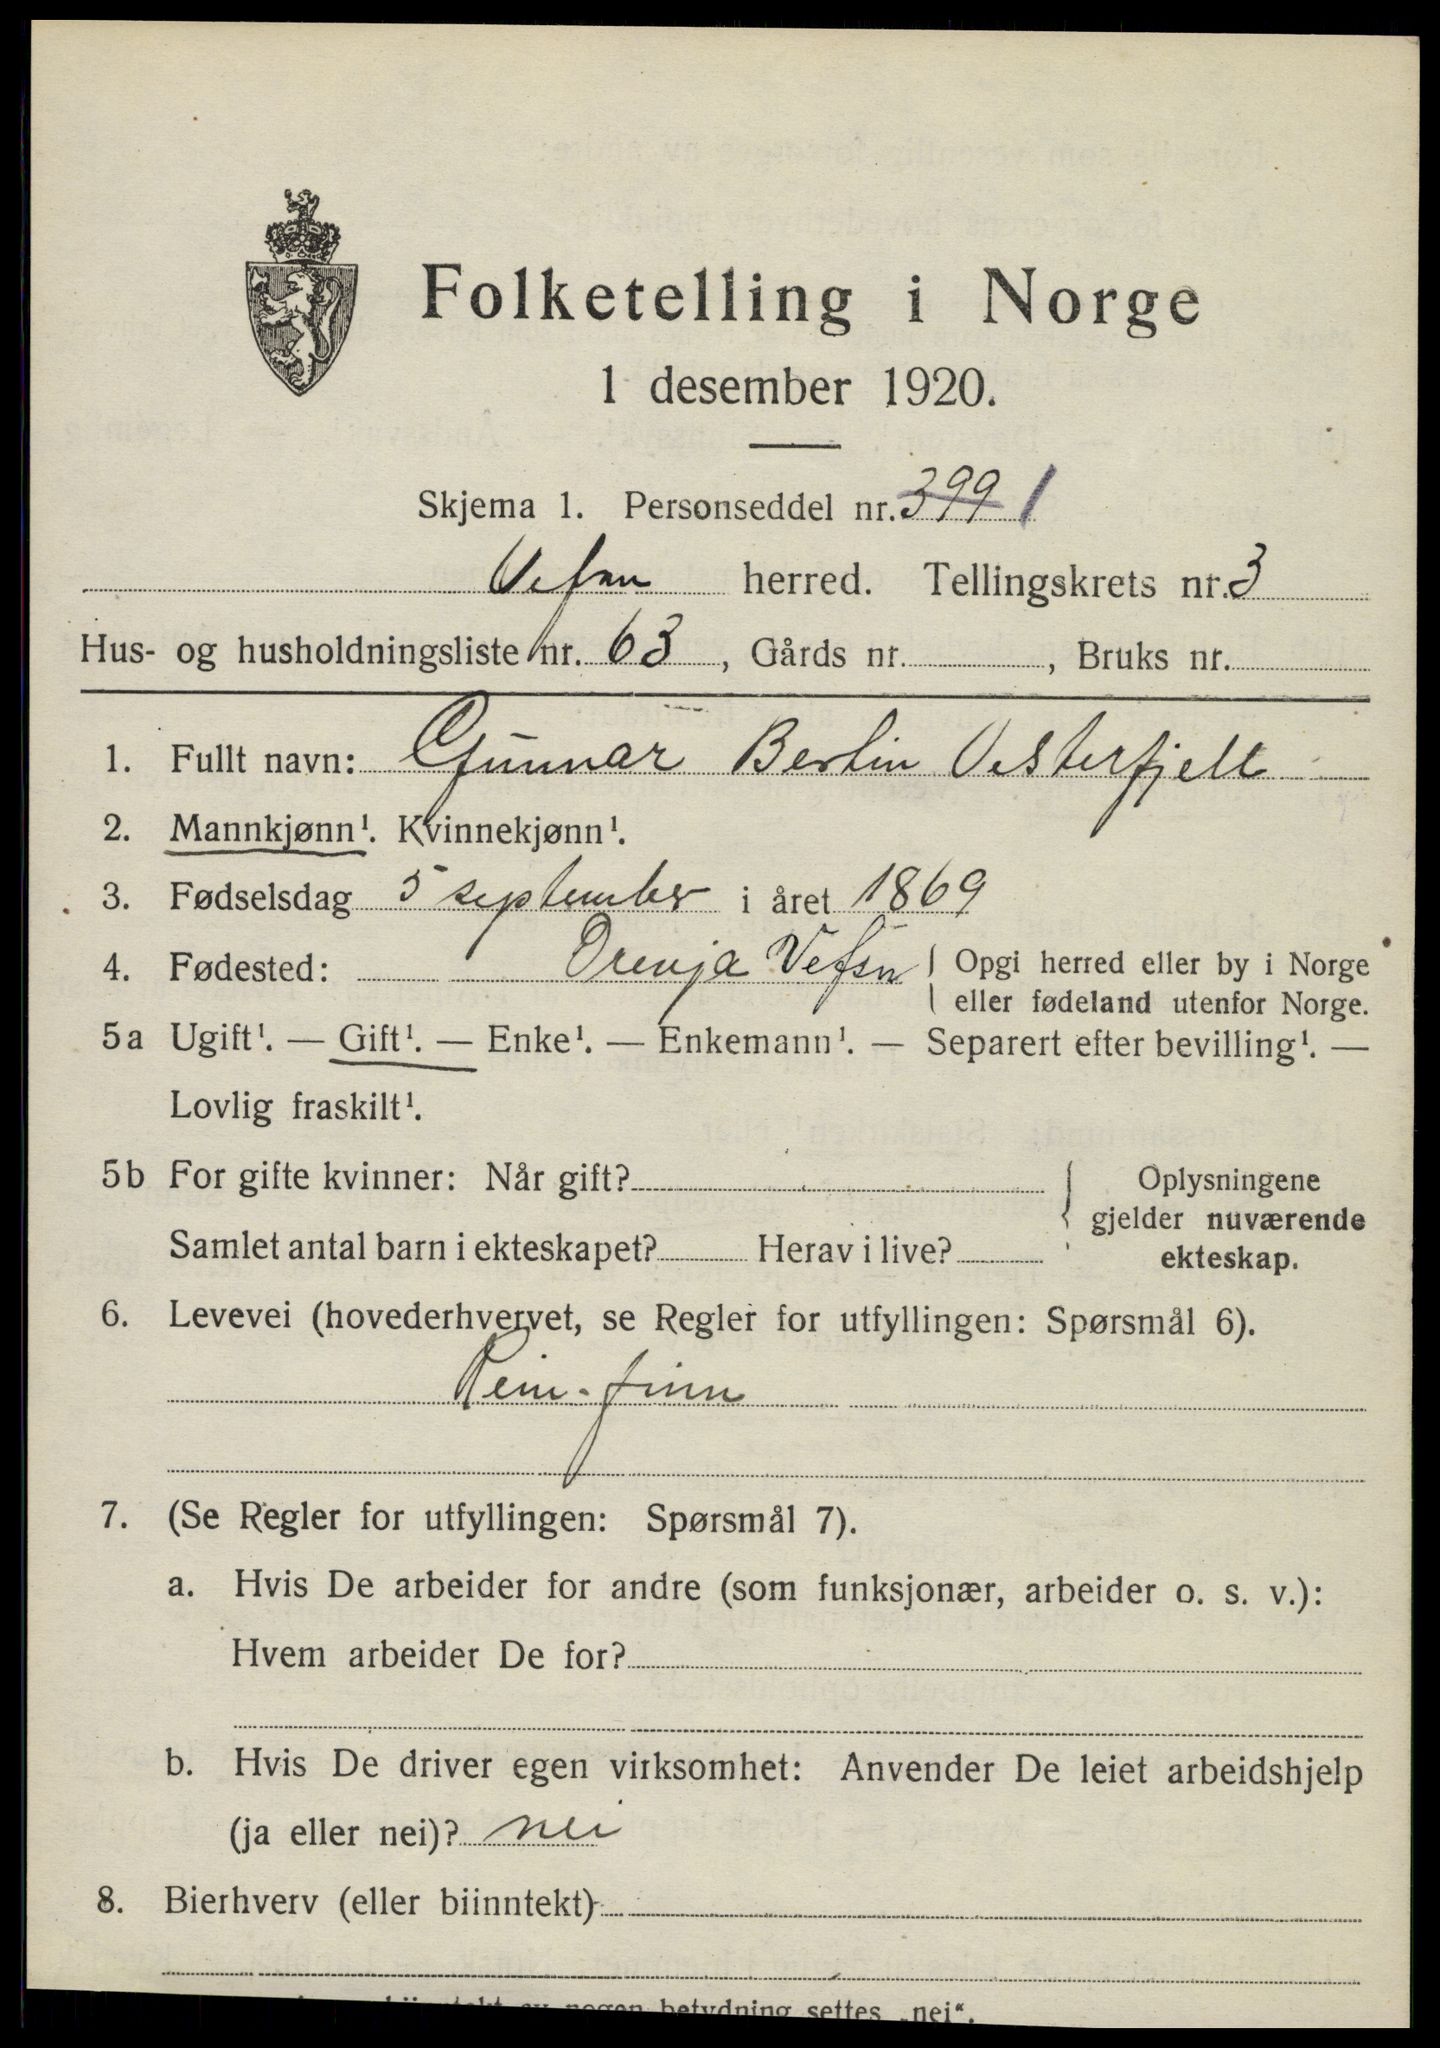 Folketelling i Norge
1 desember 1920.
Skjema 1. Personseddel nr. 399 1
Vefsn herred. Tellingskrets nr. 3
Hus- og husholdningsliste nr. 63, Gårds nr. , Bruks nr.
1. Fullt navn: Gunnar Bertin Vesterfjell
2. Mannkjønn¹. Kvinnekjønn¹.
3. Fødselsdag 5 september i året 1869
4. Fødested: Drevja Vefsn { Opgi herred eller by i Norge
eller fødeland utenfor Norge.
5a Ugift¹. — Gift¹. — Enke¹. — Enkemann¹. — Separert efter bevilling¹. —
Lovlig fraskilt¹.
5b For gifte kvinner: Når gift? { Oplysningene
gjelder nuværende
Samlet antal barn i ekteskapet? Herav i live? ekteskap.
6. Levevei (hovederhvervet, se Regler for utfyllingen: Spørsmål 6).
Rein-finn
7. (Se Regler for utfyllingen: Spørsmål 7).
a. Hvis De arbeider for andre (som funksjonær, arbeider o. s. v.):
Hvem arbeider De for?
b. Hvis De driver egen virksomhet: Anvender De leiet arbeidshjelp
(ja eller nei)? nei
8. Bierhverv (eller biinntekt)
av nogen betydning settes „nei“.